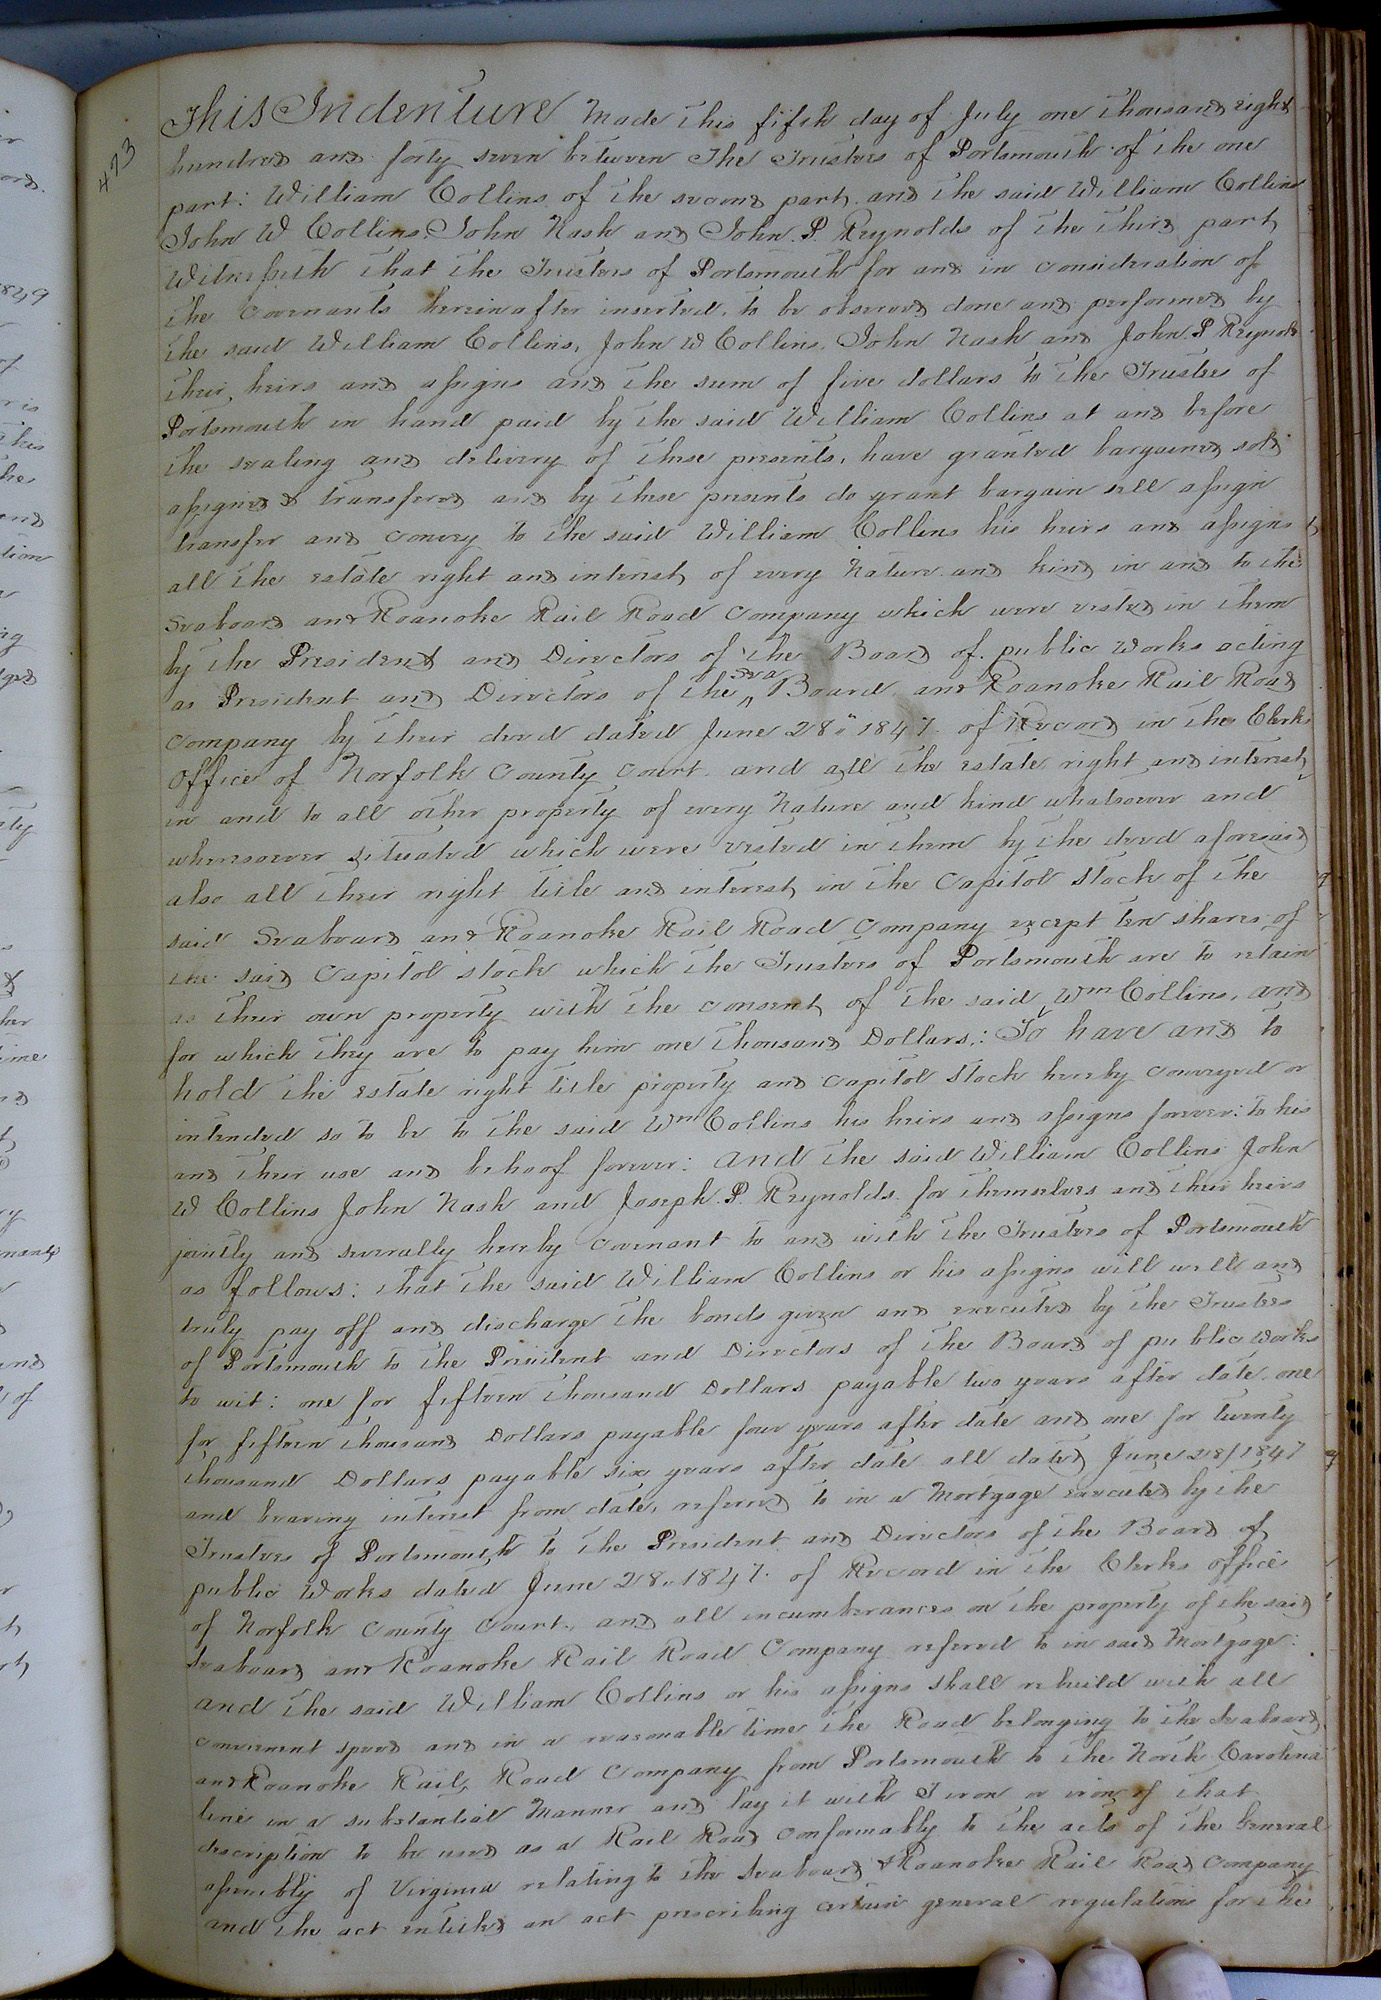 473
This Indenture Made this fifth day of July one thousand eight
hundred and forty seven between The Trustees of Portsmouth of the one
part: William Collins of the second part and the said William Collins
John W Collins, John Nash and John. P. Reynolds of the third part
Witnesseth that the Trustees of Portsmouth for and in consideration of
the covenants hereinafter inserted, to be observed done and performed by
the said William Collins, John W Collins, John Nash and John. P. Reynolds
their, heirs and assigns and the sum of five dollars to the Trustees of
Portsmouth in hand paid by the said William Collins at and before
the sealing and delivery of these presents, have granted bargained sold
assigned & transfered and by these presents do grant bargain sell assign
transfer and convey to the said William Collins his heirs and assigns
all the estate right and interest of every Nature and kind in and to the
Seaboard and Roanoke Rail Road Company which were vested in them
by the President and Directors of the Board of public Works acting
as President and Directors of the Sea Board and Roanoke Rail Road
Company by their deed dated June 28" 1847 of Record in the Clerks
Office of Norfolk County Court and all the estate right and interest
in and to all other property of every Nature and kind whatsoever and
wheresoever situated which were vested in them by the deed aforesaid
also all their right title and interest in the Capitol Stock of the
said Seaboard and Roanoke Rail Road Company except ten shares of
the said Capitol stock which the Trustees of Portsmouth are to retain
as their own property with the consent of the said Wm Collins, and
for which they are to pay him one thousand Dollars: To have and to
hold the estate right title property and capitol Stock hereby conveyed or
intended so to be to the said Wm Collins his heirs and assigns forever: to his
and their use and behoof forever: and the said William Collins John
W Collins John Nash and Joseph. P. Reynolds for themselves and their heirs
jointly and severally hereby covenant to and with the Trustees of Portsmouth
as follows: that the said William Collins or his assigns will well and
truly pay off and discharge the bonds given and executed by the Trustees
of Portsmouth to the President and Directors of the Board of public Works
to wit: one for fifteen thousand Dollars payable two years after date, one
for fifteen thousand Dollars payable four years after date and one for twenty
thousand Dollars payable six years after date all dated June 28/1847
and bearing interest from date, referred to in a Mortgage executed by the
Trustees of Portsmouth to the President and Directors of the Board of
public Works dated June 28" 1847. of Record in the Clerks office
of Norfolk County Court, and all incumberances on the property of the said
Seaboard and Roanoke Rail Road Company referred to in said Mortgage:
and the said William Collins or his assigns shall rebuild with all
convenient speed and in a reasonable time the Road belonging to the Seaboard
and Roanoke Rail Road Company from Portsmouth to the North Carolina
line in a substantial Manner and lay it with T iron or iron of that
description to be used as a Rail Road conformably to the acts of the General
assembly of Virginia relating to the Seaboard & Roanoke Rail Road Company
and the act entitled an act prescribing certain general regulations for the